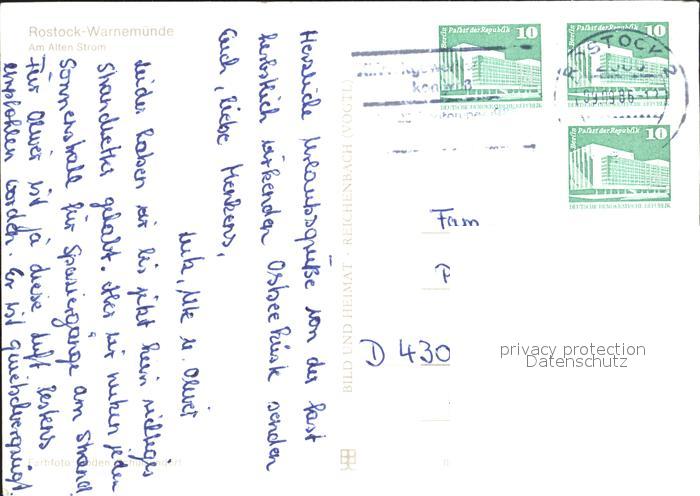 Rostock-Warnemünde
Am Alten Strom
Herzliche Urlaubsgrüße von der fast
herbstlich wirkenden Ostseeküste senden
Euch, liebe Henkens,
Lutz, Ute u. Oliver
Leider haben wir bis jetzt kein
Strandwetter gehabt. Aber wir nutzen jeden
Sonnenstrahl für Spaziergänge am Strand.
Für Oliver ist ja diese Luft bestens
empfohlen worden. Er ist quietschvergnügt
BILD UND HEIMAT · REICHENBACH (VOGTL)
Berlin Palast der Republik 10
DEUTSCHE DEMOKRATISCHE REPUBLIK
Berlin Palast der Republik 10
DEUTSCHE DEMOKRATISCHE REPUBLIK
Berlin Palast der Republik 10
DEUTSCHE DEMOKRATISCHE REPUBLIK
ROSTOCK 2
Fam
P
D 430
privacy protection
Datenschutz